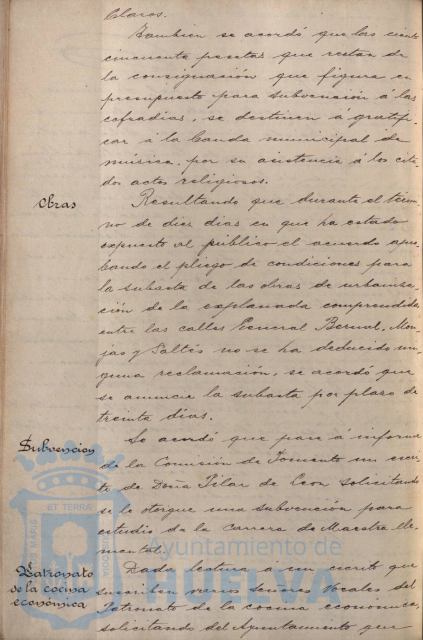 Claros.
También se acordó que las ciento
cincuenta pesetas que restan de
la consignación que figura en
presupuesto para subvención á las
cofradías, se destinen á gratifi-
car á la banda municipal de
música, por su asistencia á los cita-
dos actos religiosos.
Obras
Resultando que durante el térmi-
no de diez días en que ha estado
expuesto al público el acuerdo apro-
bando el pliego de condiciones para
la subasta de las obras de urbaniza-
ción de la explanada comprendida
entre las calles General Bernal, Mon-
jas y Saltés no se ha deducido nin-
guna reclamación, se acordó que
se anuncie la subasta por plazo de
treinta días.
Subvención
Se acordó que pase á informe
de la Comisión de Fomento un escri-
to de Doña Pilar de Leon solicitando
se le otorgue una subvención para
estudio de la carrera de Maestra Ele-
mental.
Patronato
de la cocina
económica
Dada lectura á un escrito que
suscriben varios Señores Vocales del
Patronato de la cocina económica,
solicitando del Ayuntamiento que
Ayuntamiento de
HUELVA